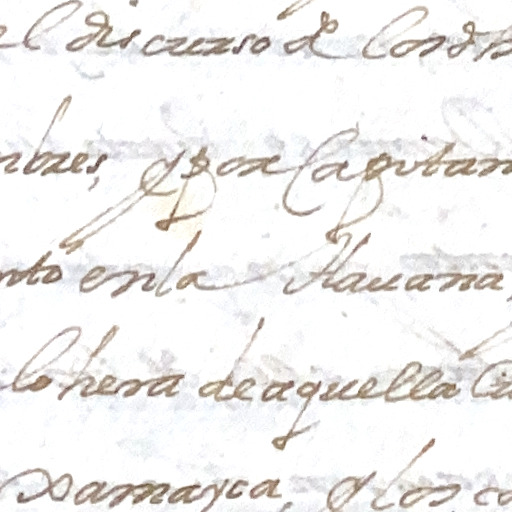 el discurso de los d
mbres, y por Capitan
nto en la Hauana,
lo hera de aquella Ciu
Xamayca, y los co